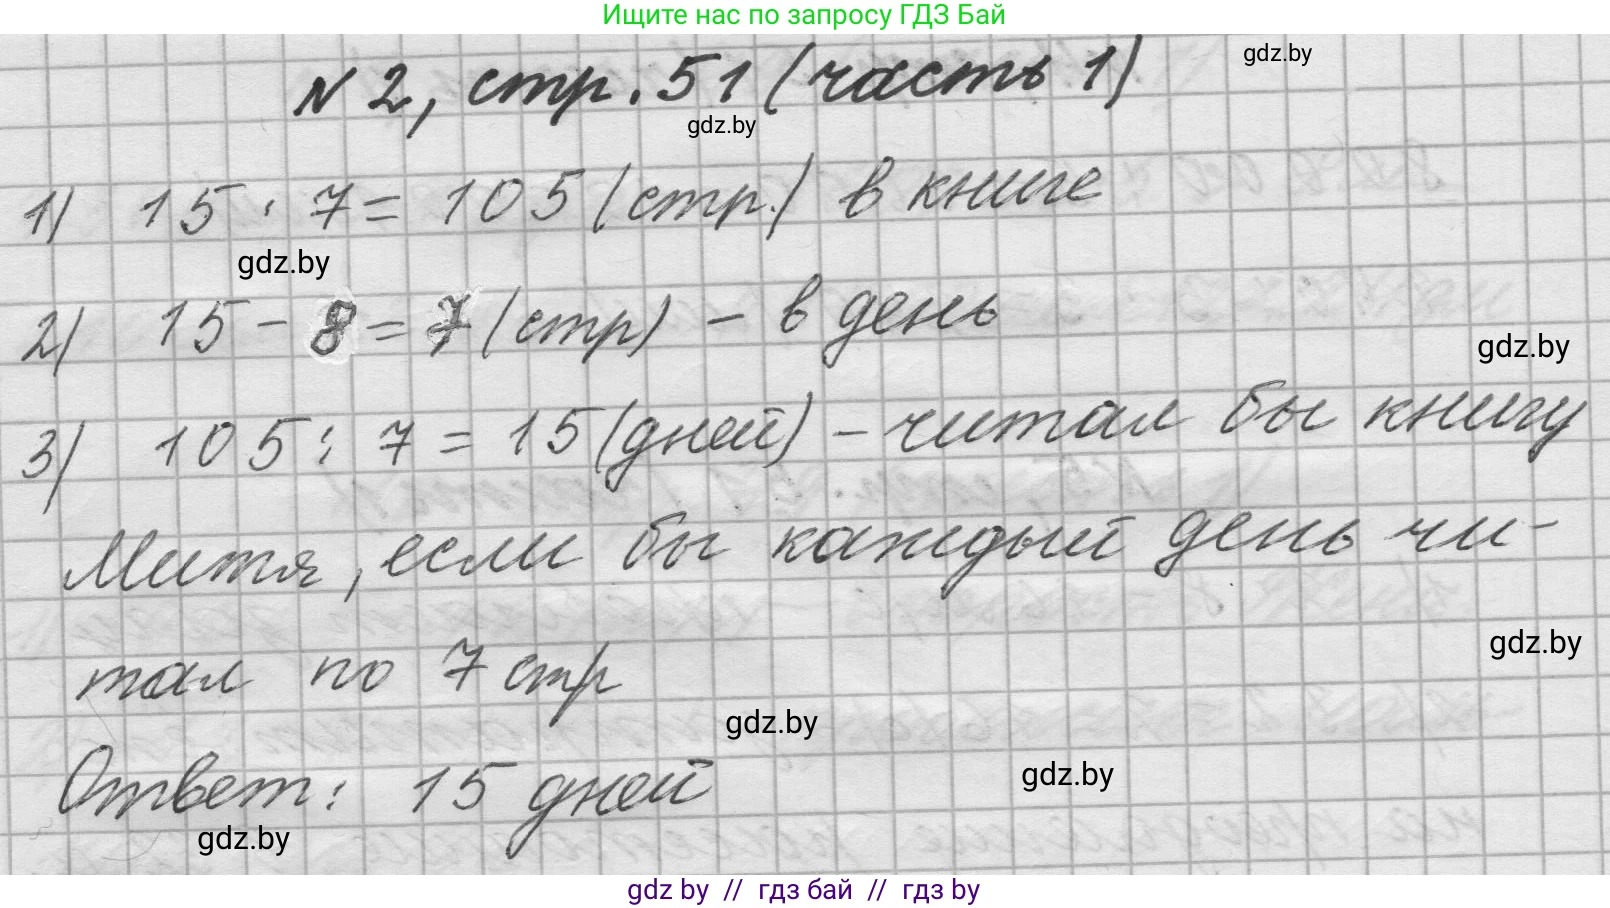 Ищите нас по запросу ГДЗ Бай
gdz.by
№ 2, стр. 51 (часть 1)
gdz.by
1) 15 · 7 = 105 (стр.) в книге
gdz.by
2) 15 - 8 = 7 (стр) - в день
gdz.by
3) 105 : 7 = 15 (дней) - читал бы книгу
Митя, если бы каждый день чи-
тал по 7 стр
gdz.by
gdz.by
Ответ: 15 дней
gdz.by
gdz.by
gdz by // гдз бай // гдз by